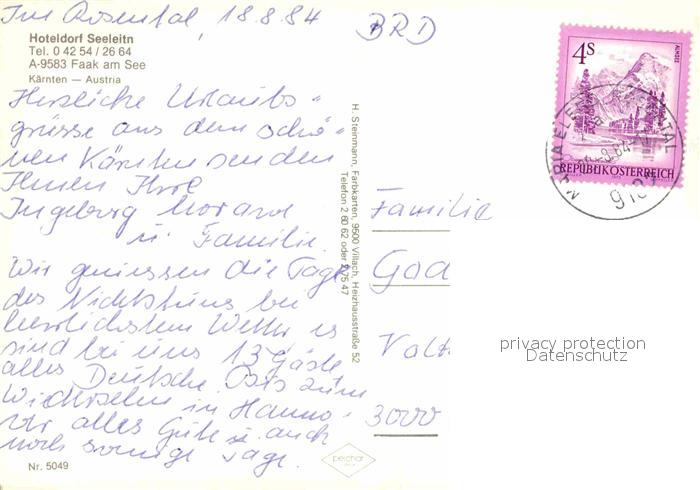 Im Rosental, 18.8.84
BRD
Hoteldorf Seeleitn
Tel. 0 42 54 / 26 64
A-9583 Faak am See
Kärnten — Austria
Herzliche Urlaubs-
grüsse aus dem schö-
nen Kärnten senden
Ihnen Ihre
Ingeborg Morand
u. Familie.
Wir geniessen die Tage
des Nichtstuns bei
herrlichstem Wetter es
sind bei uns 13 Gäste
alles Deutsche
in Hanno-
ver alles Gute u. auch
noch sonnige Tage.
Nr. 5049
H. Steinmann, Farbkarten, 9500 Villach, Heizhausstraße 52
Telefon 2 60 62 oder 2 75 47
peichar
4S
ALMSEE
REPUBLIK ÖSTERREICH
Familie
3000
privacy protection
Datenschutz